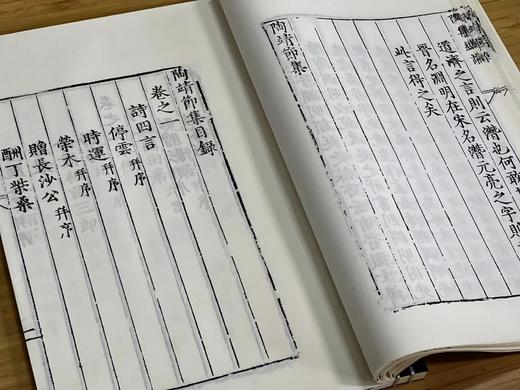 道濟之言則云潛也何敢
晉名淵明在宋名潛元亮之字
此言得之矣
陶靖節集
陶靖節集目錄
卷之一
詩四言
停雲幷序
時運幷序
榮木幷序
贈長沙公幷序
酬丁柴桑